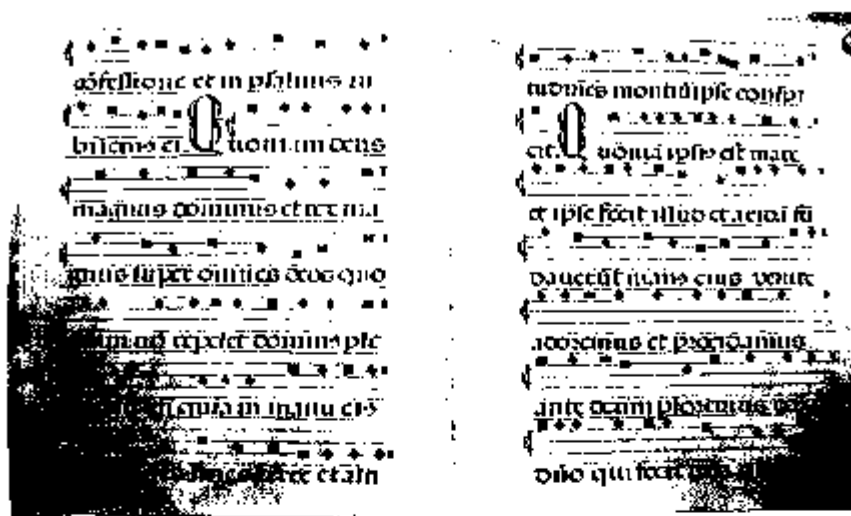 cōfessione et in psalmis iu
bilemus ei. Quoniam deus
magnus dominus et rex ma
gnus super omnes deos quo
nō repelet dominus ple
in manu ei⁹
et alti
tudines montiū ipse conspi
cit. Quoniā ipsius est mare
et ipse fecit illud et aridā fū
dauerūt manus eius venite
adoremus et procidamus
ante deum ploremus
mino qui fecit